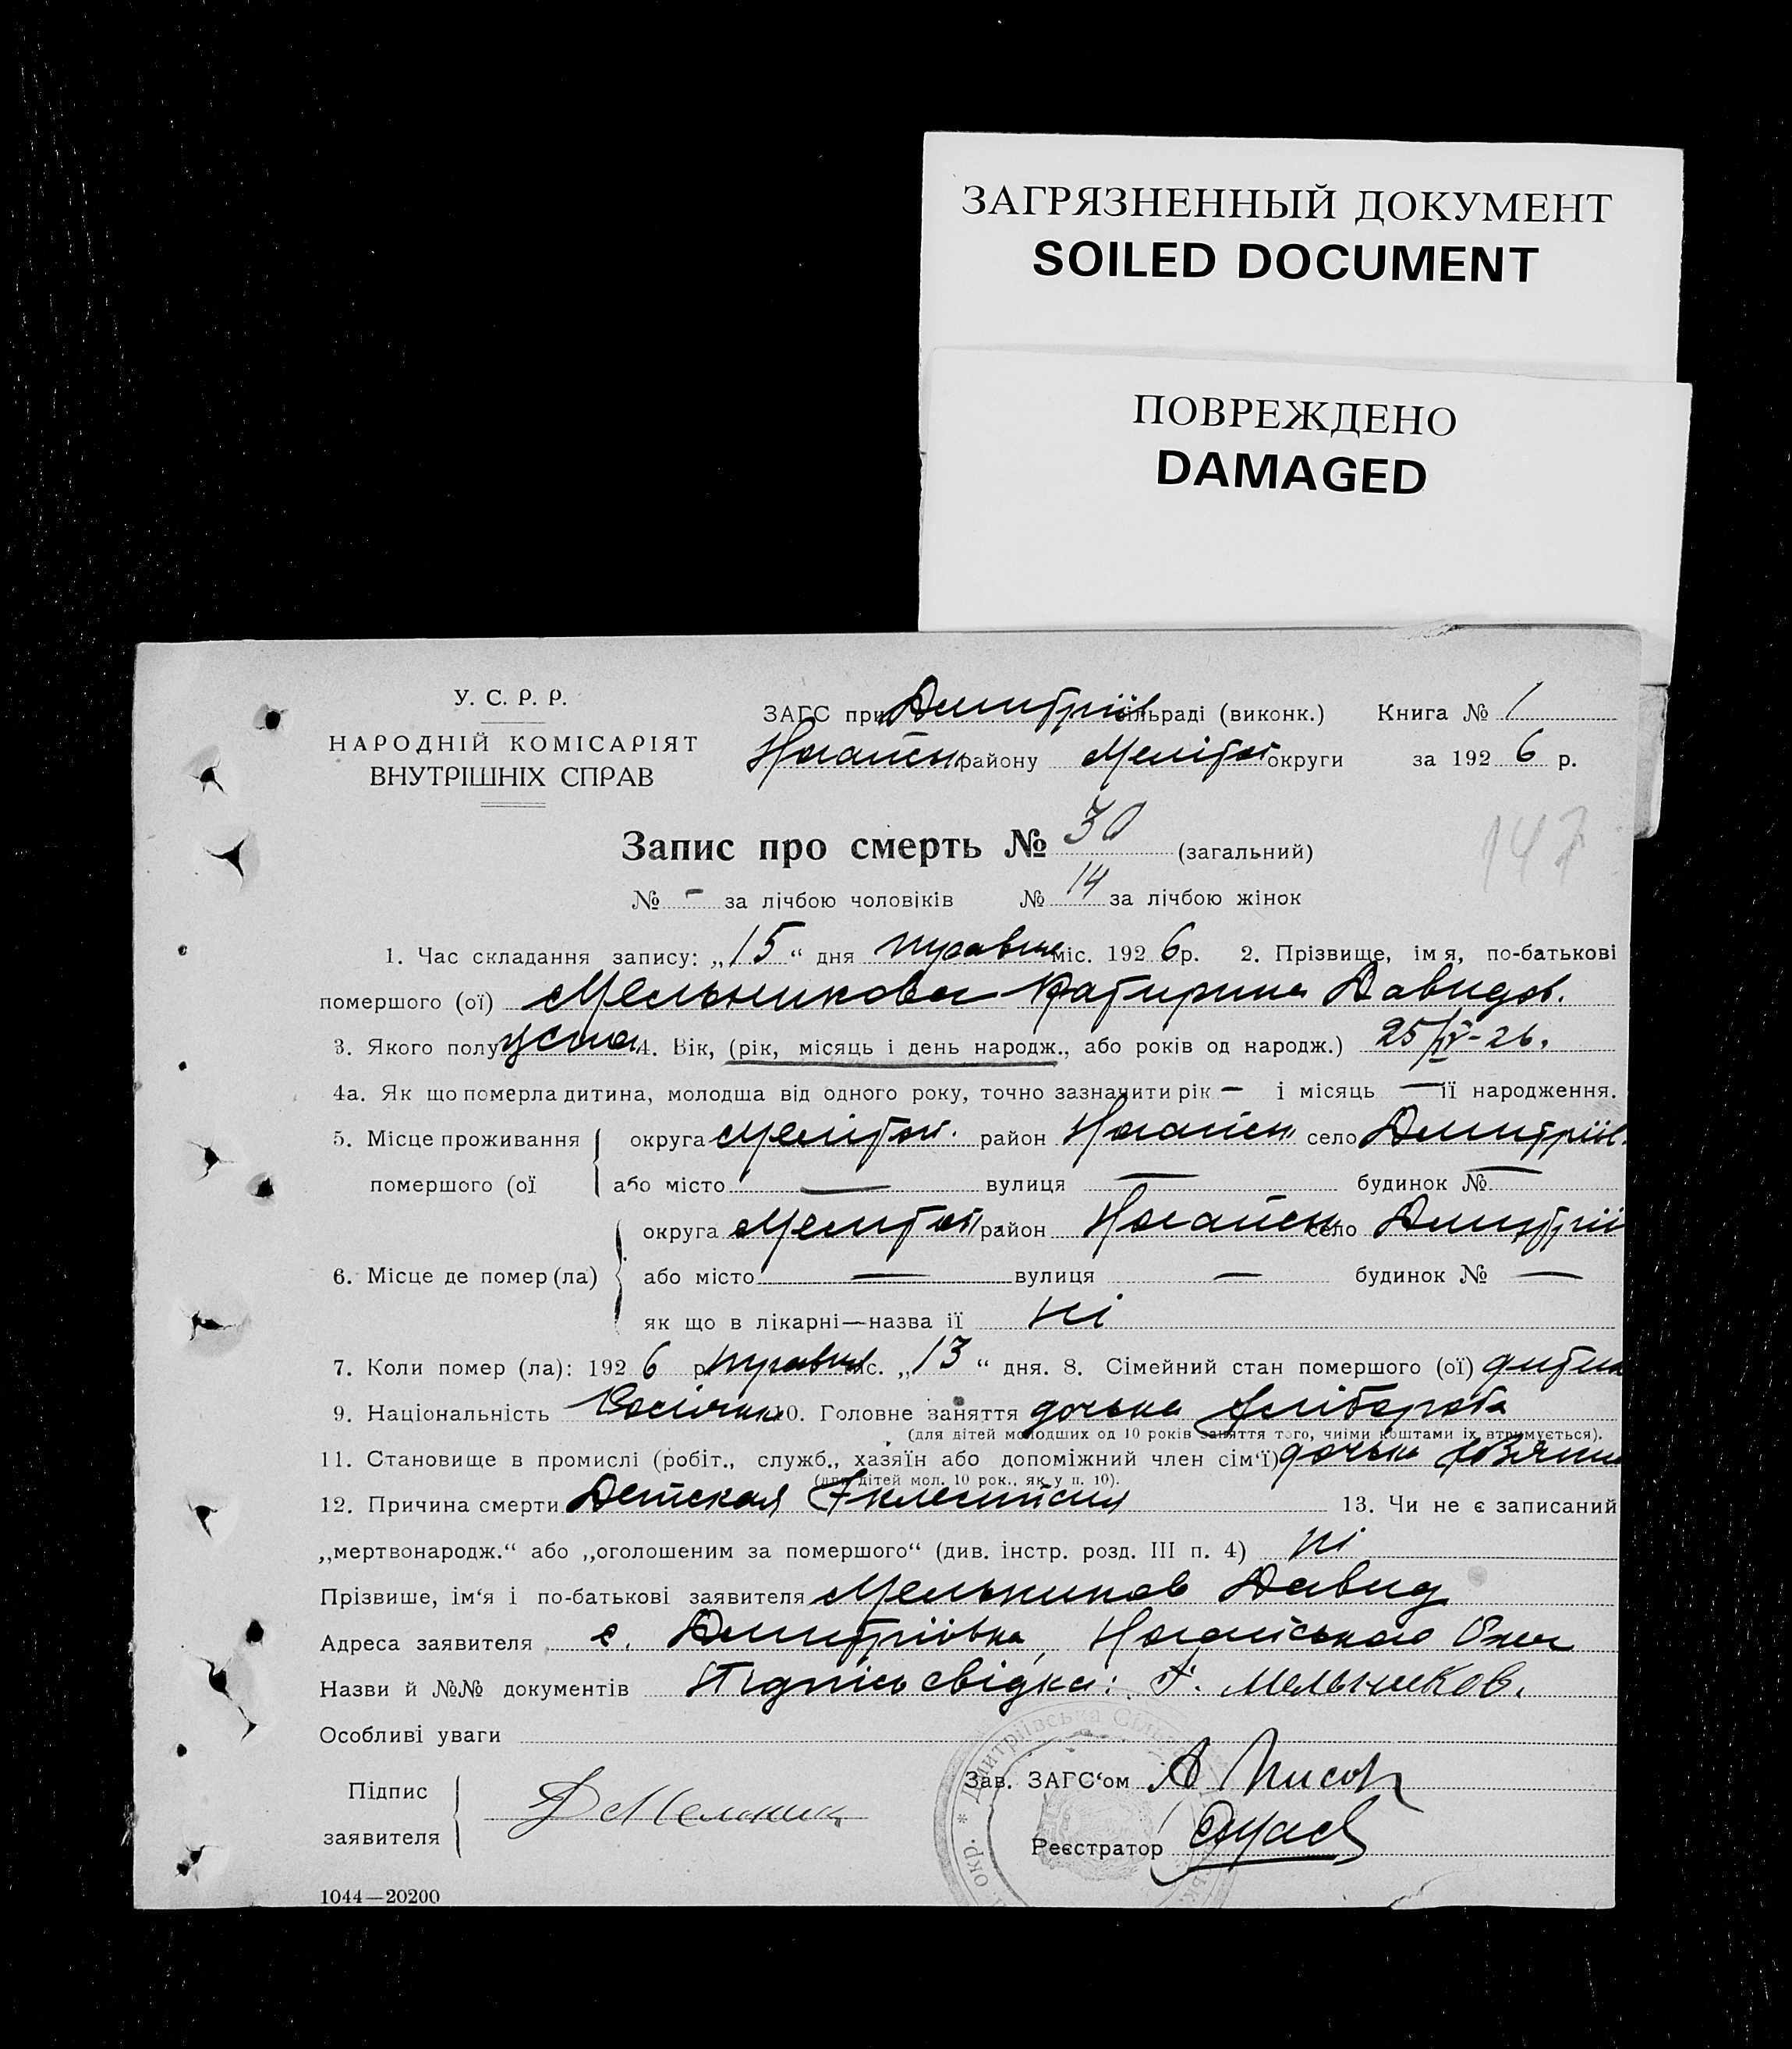 ЗАГРЯЗНЕННЫЙ ДОКУМЕНТ
SOILED DOCUMENT
ПОВРЕЖДЕНО
DAMAGED
У. С. Р. Р.
НАРОДНІЙ КОМІСАРІЯТ
ВНУТРІШНІХ СПРАВ
ЗАГС при Дмитріїв сільраді (виконк.) Книга № 1
Ногайськ району Меліто округи за 1926 р.
Запис про смерть № 30 (загальний)
147
№ - за лічбою чоловіків № 14 за лічбою жінок
1. Час складання запису: „15“ дня травня міс. 1926 р. 2. Прізвище, імя, по-батькові
помершого (ої) Мельникова Катирина Давидов.
3. Якого полу жіноч 4. Вік, (рік, місяць і день народж., або років од народж.) 25/IV-26.
4а. Як що померла дитина, молодша від одного року, точно зазначити рік — і місяць — її народження.
5. Місце проживання округа Меліто район Ногайськ село Дмитріїв.
помершого (ої або місто — вулиця — будинок № —
округа Меліто район Ногайськ село Дмитрії
6. Місце де помер (ла) або місто — вулиця — будинок № —
як що в лікарні—назва її ні
7. Коли помер (ла): 1926 р. травня міс. „13“ дня. 8. Сімейний стан помершого (ої) дитина
9. Національність 10. Головне заняття дочька хлібороба
(для дітей молодших од 10 років заняття того, чиїми коштами їх втримується).
11. Становище в промислі (робіт., служб., хазяїн або допоміжний член сім‘ї) дочька
(для дітей мол. 10 рок., як у п. 10).
12. Причина смерти Детская Эклемпсия 13. Чи не є записаний
„мертвонародж.“ або „оголошеним за помершого“ (див. інстр. розд. III п. 4) ні
Прізвише, ім‘я і по-батькові заявителя Мельников Давид
Адреса заявителя с. Дмитріївка, Ногайського
Назви й №№ документів Підпись свідка: Г. Мельников.
Особливі уваги
Підпис
заявителя Д Мельник
Зав. ЗАГС‘ом
Реєстратор
* Дмитріївська Сіль
окр.
1044—20200